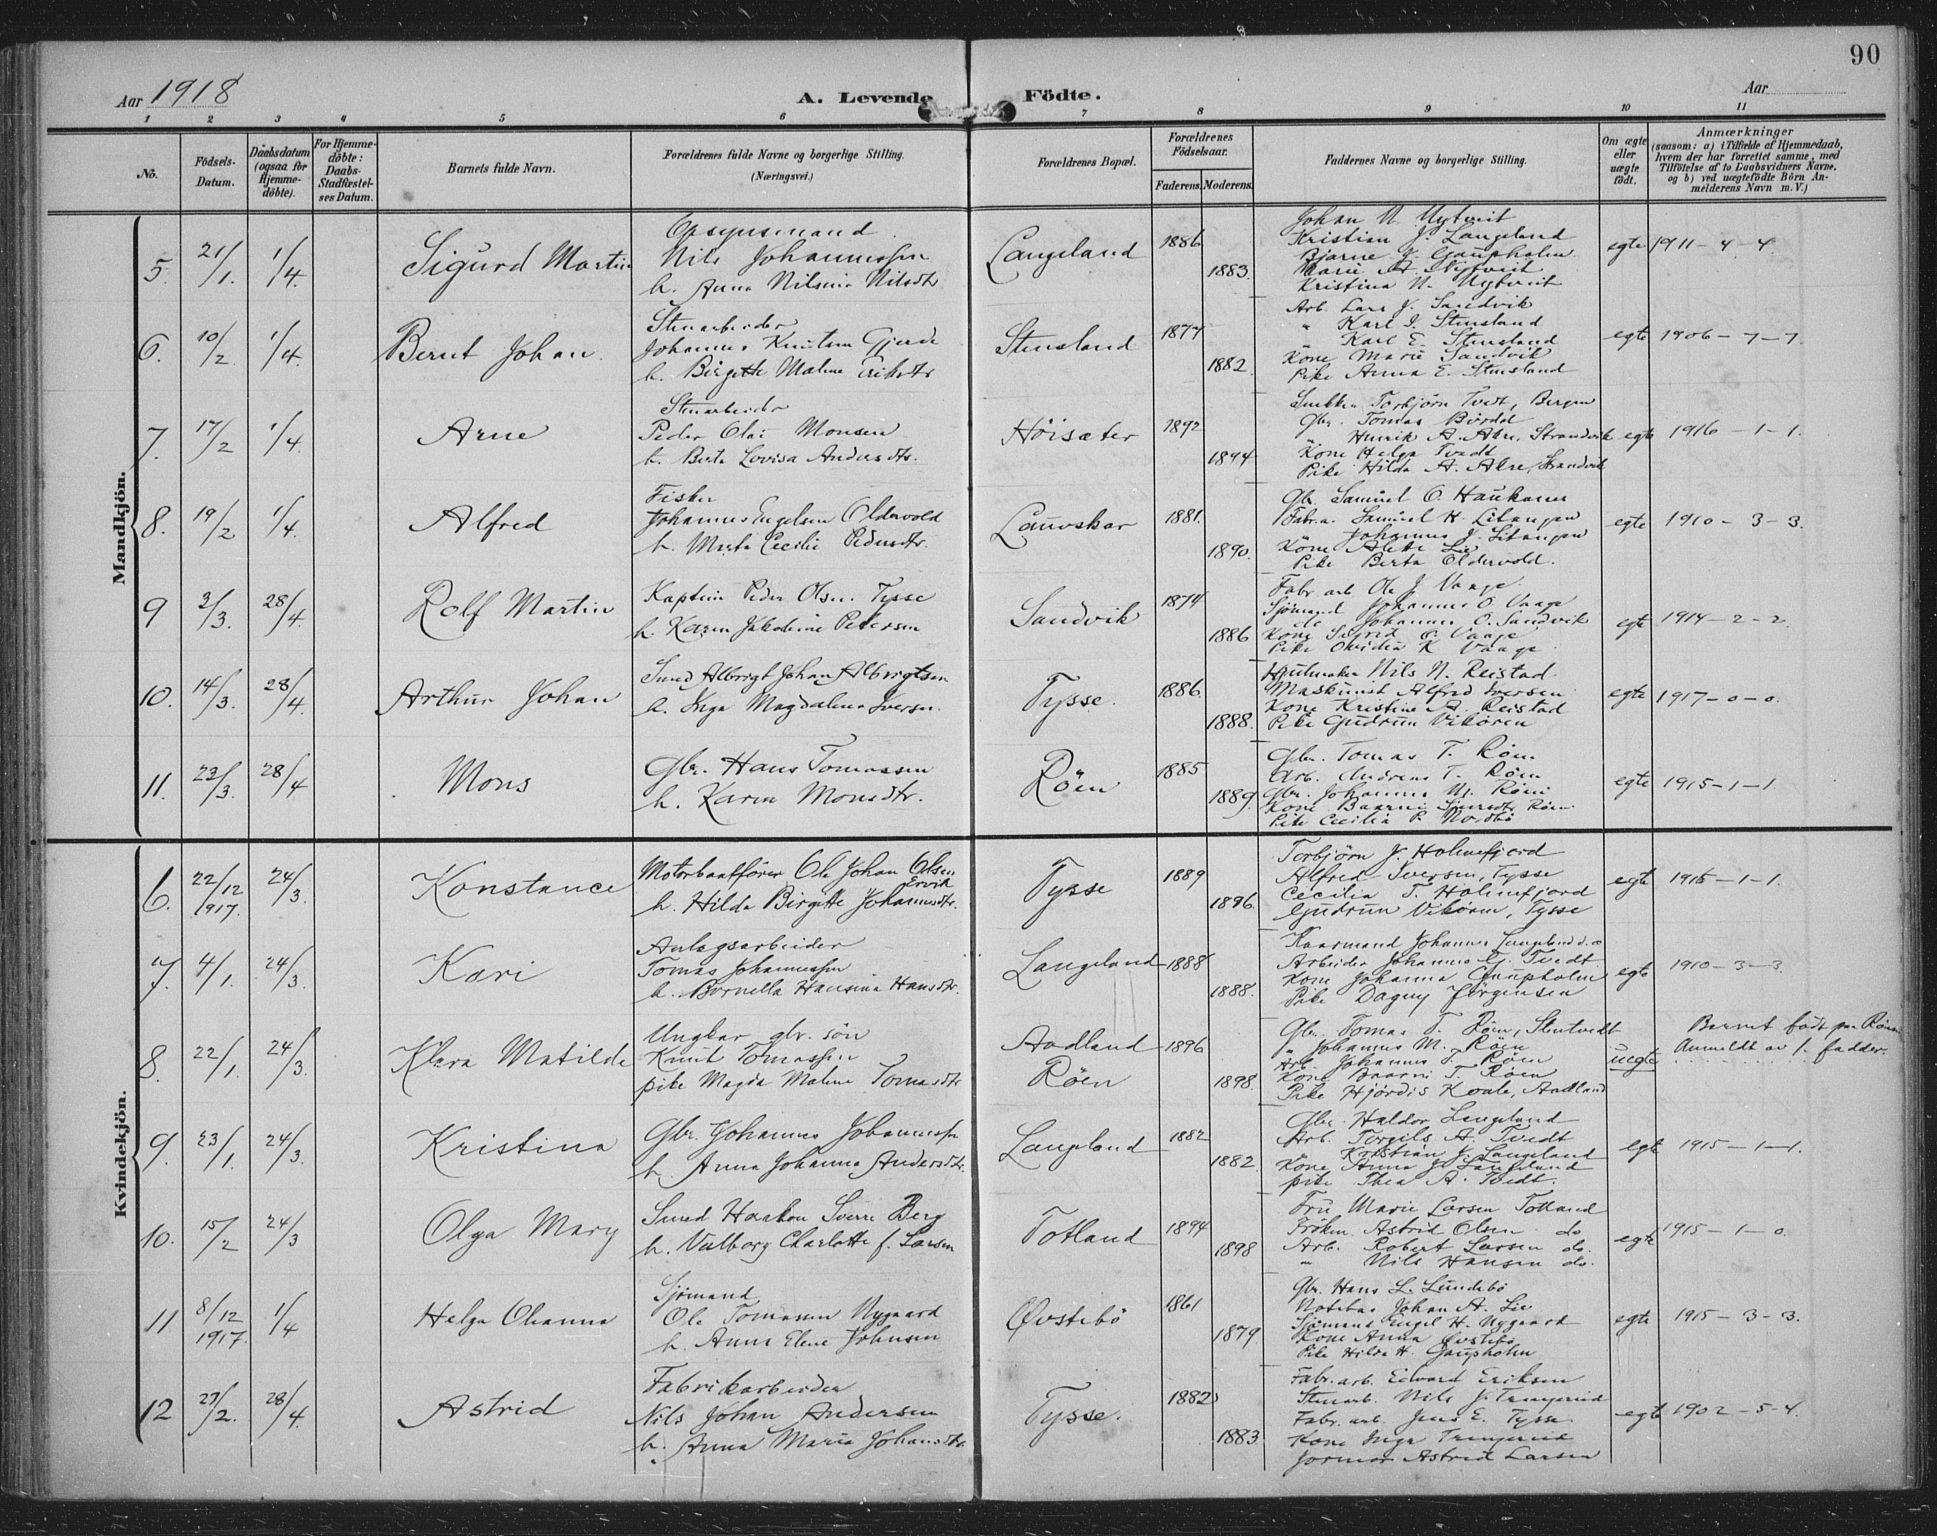 90
Aar 1918
A. Levende Födte.
Aar
1 2 3 4 5 6 7 8 9 10 11
No.
Födsels-Datum.
Daabsdatum (ogsaa for Hjemme-döbte).
For Hjemme-döbte: Daabs-Stadfæstel-ses Datum.
Barnets fulde Navn.
Forældrenes fulde Navne og borgerlige Stilling. (Næringsvei.)
Forældrenes Bopæl.
Forældrenes Födselsaar.
Faderens. Moderens.
Faddernes Navne og borgerlige Stilling.
Om ægte eller uægte födt.
Anmærkninger (saasom: a) i Tilfælde af Hjemmedaab, hvem der har forrettet samme, med Tilföielse af to Daabsvidners Navne, og b) ved uægtefödte Börn An-melderens Navn m. V.)
Mandkjön.
5. 21/1. 1/4. Sigurd Martin
Opsynsmand
Nils Johannessen
h. Anna Nilsina Nilsdtr
Langeland 1886 1883.
Johan N. Nytveit
Kristian J. Langeland
Bjarne J. Gaupholm
Marie A. Nytveit
Kristina N. Nytveit
egte 1911 - 4 - 4.
6. 10/2. 1/4. Bernt Johan.
Stenarbeider
Johannes Knutsen Gjerde
h. Birgitte Maline Eriksdtr
Stensland 1877 1882.
Arb. Lars J. Sandvik
" Karl I. Stensland
" Karl E. Stensland
Kone Marie Sandvik
Pike Anna E. Stensland
egte 1906 - 7 - 7.
7. 17/2 1/4. Arne
Stenarbeider
Peder Olai Monsen
h. Berta Lovisa Andersdtr.
Höisæter 1892 1894.
Torbjörn Tvedt, Bergen
Gbr. Tomas
Henrik A. Strandvik
Kone Helga Tvedt
Pike Hilda A. Strandvik
egte 1916 - 1 - 1.
8. 19/2 1/4. Alfred
Fisker
Johannes Engelsen Oldervold
h. Marta Cecilie Pedersdtr.
Lauvskar 1881. 1890.
Gbr. Samuel O. Haukanes
Fabr.a. Samuel H. Litangen
Johannes J. Litangen
Kone Alette Lie
Pike Berta Oldervold.
egte 1910 - 3 - 3.
9 3/3. 28/4. Rolf Martin
Kaptein Peder Olsen Tysse
h. Karen Jakobine Petersen
Sandvik 1874 1886
Fabr. arb Ole J. Vaage
Sjömand Johannes O. Vaage
do Johannes O. Sandvik
Kone Sigrid O. Vaage
Pike Ovidia K. Vaage.
egte 1914 - 2 - 2.
10. 14/3. 28/4. Arthur Johan
Smed Albrigt Johan Albrigtsen
h. Inga Magdalena Iversen.
Tysse. 1886. 1888.
Hjulmaker Nils N. Reistad
Maskinist Alfred Iversen
Kone Kristine A. Reistad
Pike Gudrun Vikören
egte 1917 - 0 - 0.
11. 23/3. 28/4 Mons
Gbr. Hans Tomassen
h. Karen Monsdtr.
Röen 1885 1889
Gbr. Tomas T. Röen
Arb. Andreas T. Röen
Gbr. Johannes M. Röen
Kone Baarni Sjursdtr Röen
Pike Cecilia P. Nordbö
egte 1915 - 1 - 1.
Kvindekjön.
6. 22/12 1917. 24/3. Konstance
Motorbaatförer Ole Johan Olsen Ervik
h. Hilda Birgitte Johannesdtr.
Tysse 1889 1896.
Torbjörn J. Holmefjord
Alfred Iversen, Tysse
Cecilia T. Holmefjord
Gudrun Vikören, Tysse
egte 1915 - 1 - 1.
7. 4/1. 24/3. Kari
Anlegsarbeider
Tomas Johannessen
h. Bornella Hansina Hansdtr.
Langeland 1888 1888.
Kaarmand Johannes Langeland d.æ
Arbeider Johannes G. Tvedt
Kone Johanna Gaupholm
Pike Dagny Jörgensen
egte 1910 - 3 - 3.
8. 22/1. 24/3. Klara Matilde
Ungkar gbr. sön
Knut Tomassen
pike Magda Maline Tomasdtr
Aadland 1896
Röen 1898.
Gbr. Tomas T. Röen, Stentvedt
" Johannes M. Röen
Arb. Johannes T. Röen
Kone Baarni T. Röen
Pike Hjördis Koale, Aadland
uegte
Barnet födt paa Röen
Anmeldt av 1. fadder.
9. 23/1. 24/3. Kristina
Gbr. Johannes Johannessen
h. Anna Johanna Andersdtr.
Langeland 1882 1882.
Gbr. Haldor Langeland
Arb. Torgils A. Tvedt
" Kristian J. Langeland
Kone Anna J. Langeland
pike Thea A. Tvedt.
egte 1915 - 1 - 1.
10. 15/2 24/3 Olga Mary
Smed Haakon Sverre Berg
h. Valborg Charlotte f. Larsen
Totland 1894 1898
Fru Marie Larsen Totland
Fröken Astrid Olsen do
Arb. Robert Larsen do.
" Nils Hansen do.
egte 1915 - 1 - 0.
11 8/12 1917. 1/4 Helga Olianna
Sjömand
Ole Tomassen Nygaard
h. Anna Elene Johnsen
Øvstebö 1861 1879.
Gbr. Hans L. Lundebö
Notebas Johan A. Lie
Sjömand Engel H. Nygaard
Kone Anna Øvstebö
Pike Hilda H. Gaupholm
egte 1915 - 3 - 3.
12 27/2. 28/4 Astrid
Fabrikarbeider
Nils Johan Andersen
h. Anna Maria Johansdtr.
Tysse. 1882 1883
Fabr. arb. Edvard Eriksen
Stenarb. Nils J. Trengereid
Fabr. arb. Jens E. Tysse
Kone Inga Trengereid
Jormor Astrid Larsen
egte 1902 - 5 - 4.